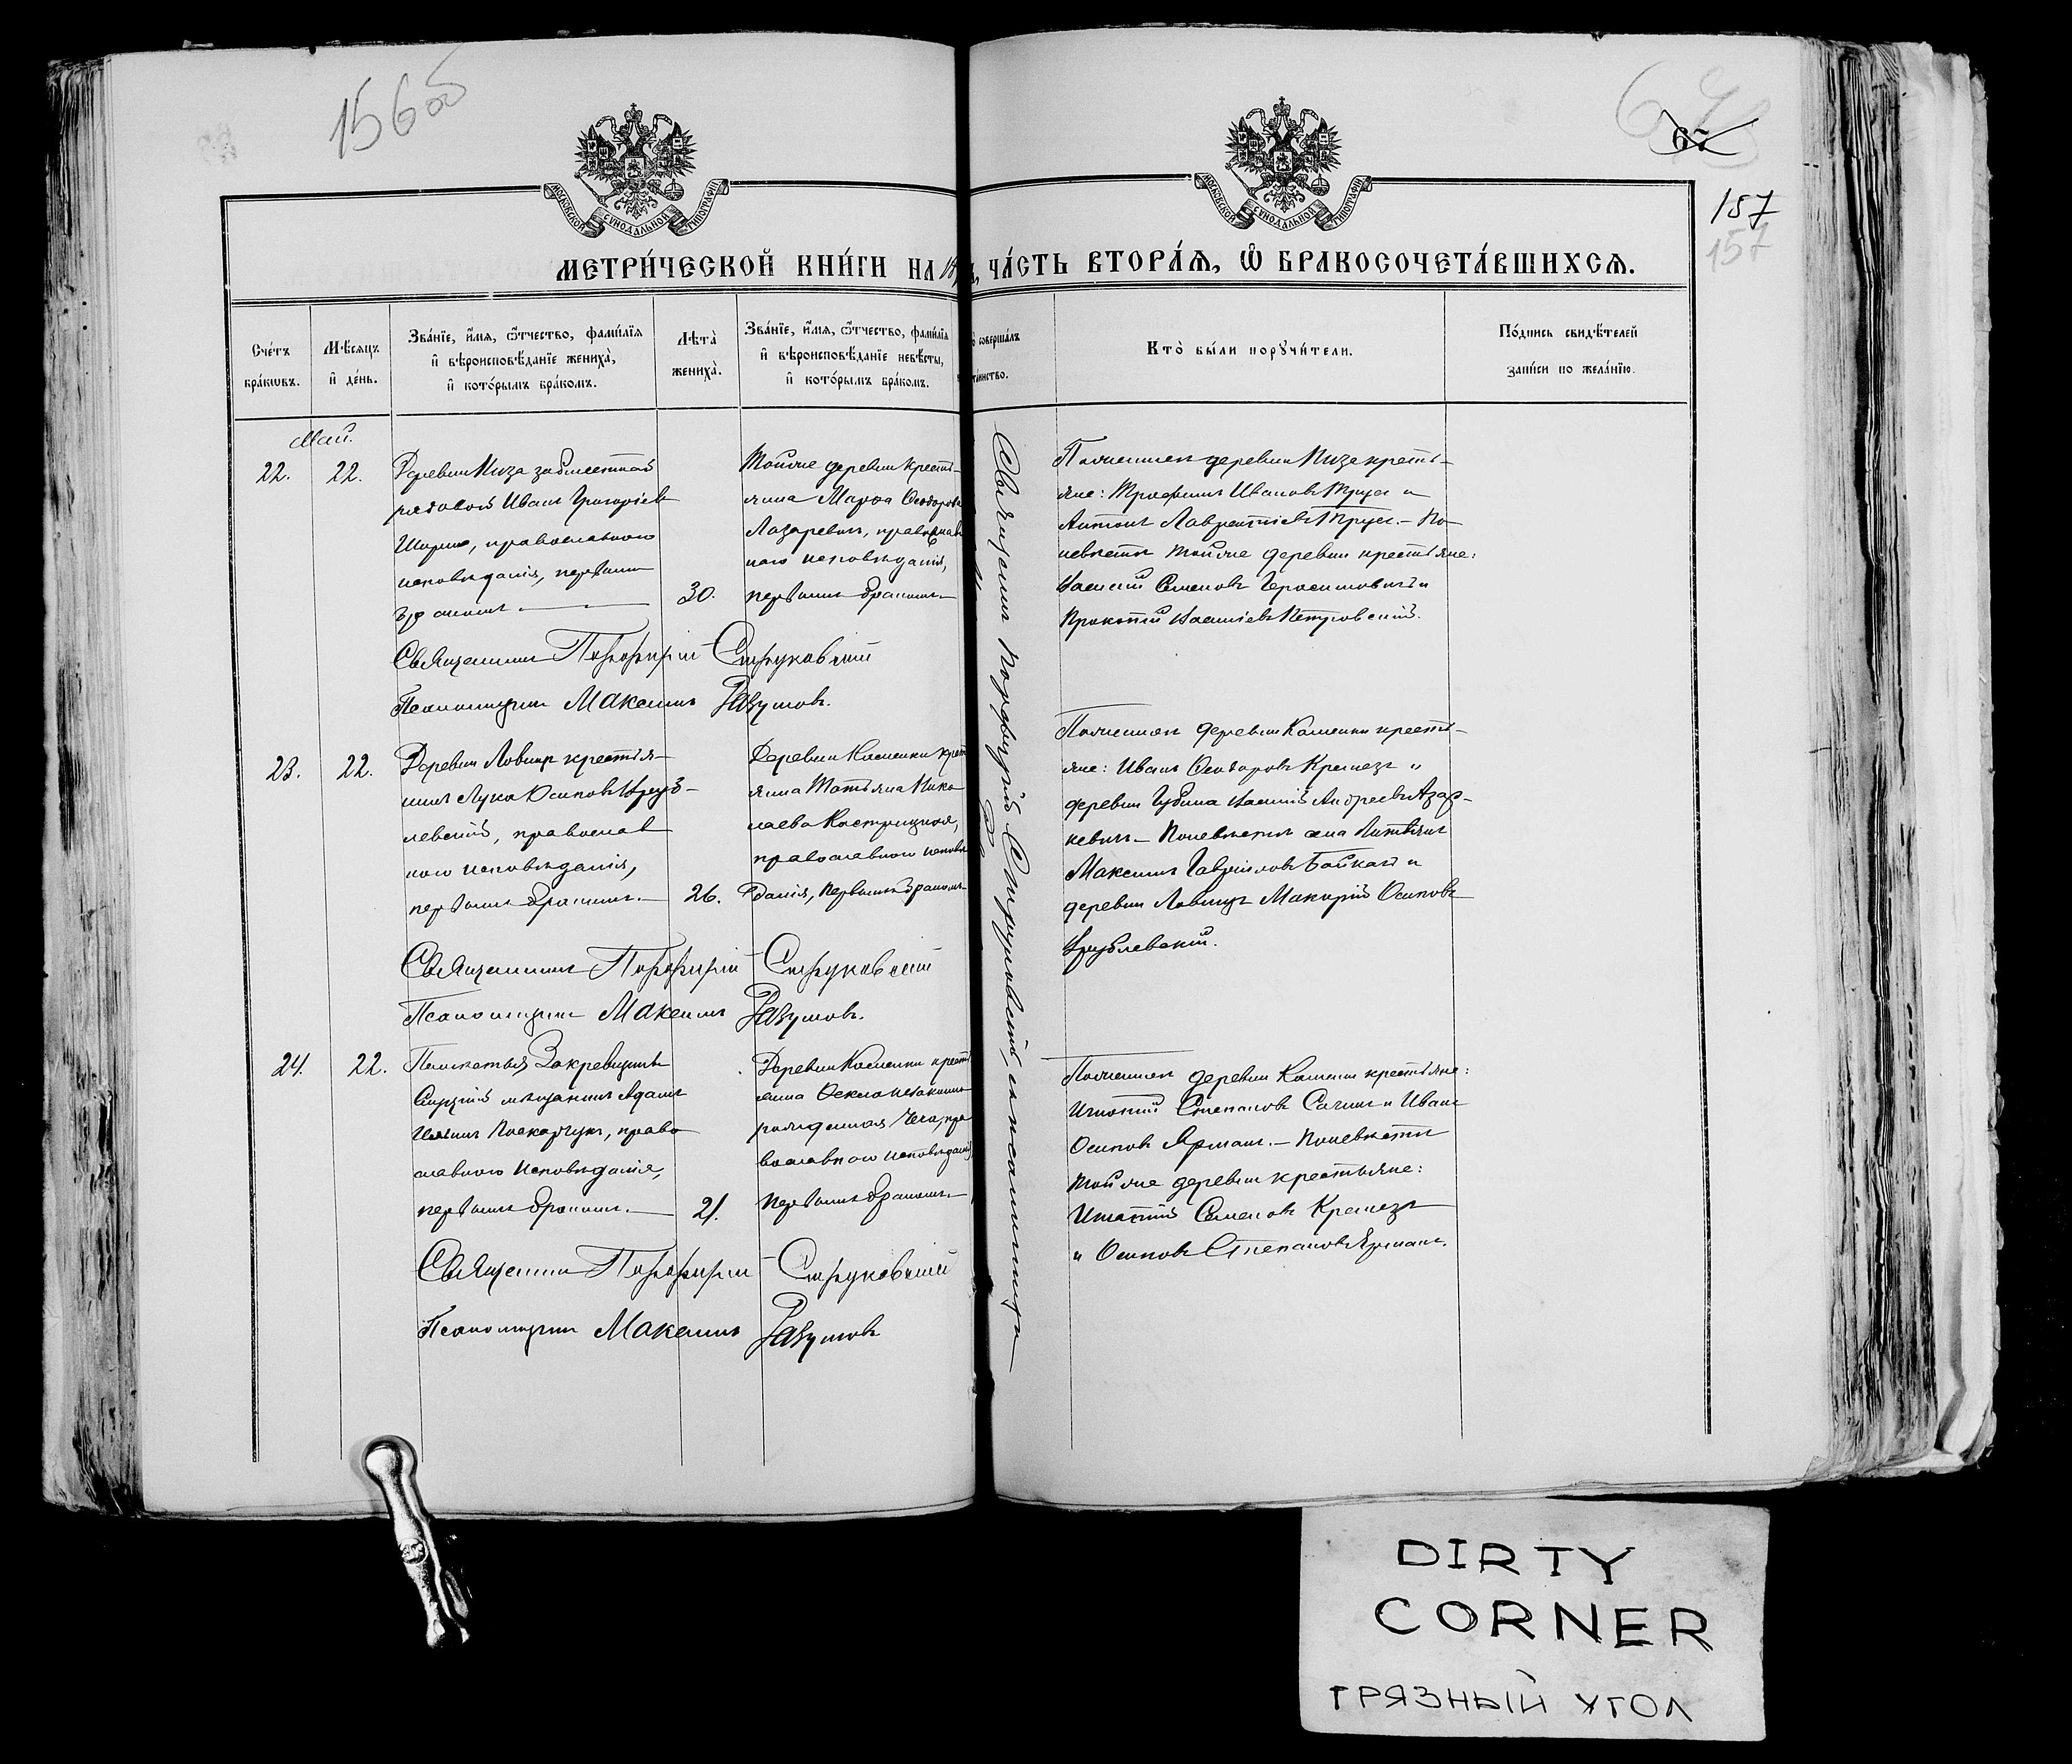 156об
67
187
157
МОСКОВСКОЙ СѴНОДАЛЬНОЙ ТИПОГРАФІИ
МОСКОВСКОЙ СѴНОДАЛЬНОЙ ТИПОГРАФІИ
МЕТРИ́ЧЕСКОЙ КНИ́ГИ НА 18
ЧА́СТЬ ВТОРА́Я, Ѽ БРАКОСОЧЕТА́ВШИХСЯ.
Сче́тъ бра́ковъ.
Мѣ́сяцъ и҆ де́нь.
Зва́нїе, и҆́мя, ѻ҆́тчество, фами́лїя и҆ вѣроисповѣ́данїе жениха̀, и҆ кото́рымъ бра́комъ.
Лѣ́та жениха̀.
Зва́нїе, и҆́мя, ѻ҆́тчество, фами́лїя и҆ вѣроисповѣ́данїе невѣ́сты, и҆ кото́рымъ бра́комъ.
соверша́лъ
та́инство.
Кто̀ бы́ли порꙋчи́тели.
По́дпись свидѣ́телей за́писи по жела́нїю.
Май.
22.
22.
Деревни Низа
рядовой Иванъ Григоріевъ
православнаго
исповѣданія, первымъ
бракомъ.
30.
Тойже деревни кресть-
янка Марѳа Ѳеодорова
Лазаревичъ, православ
наго исповѣданія,
первымъ бракомъ.
По женихѣ деревни Низа кресть-
яне: Трофимъ Ивановъ Трусъ и
Антонъ Лаврентіевъ Трусъ. - По
невѣстѣ тойже деревни крестьяне:
Василій Семеновъ Герасимовичъ и
Прокопій Василіевъ Петровскій.
Священникъ Порфирій Струковскій
Псаломщикъ Максимъ Разумовъ.
23.
22.
Деревни Ловищъ крестья-
нинъ Лука Осиповъ Вруб-
левскій, православ
наго исповѣданія,
первымъ бракомъ.
26.
Деревни Каменки крест
янка Татьяна Нико
лаева Кострицкая,
православнаго исповѣ
данія, первымъ бракомъ.
По женихѣ деревни Каменки кресть-
яне: Иванъ Ѳеодоровъ Кремезъ и
деревни Губина Василій Андреевъ Азар-
кевичъ - По невѣстѣ села
Максимъ Гавріиловъ Байкачъ и
деревни Ловищъ Макарій Осиповъ
Врублевскій.
Священникъ Порфирій Струковскій
Псаломщикъ Максимъ Разумовъ.
24.
22.
Закревщины
мѣщанинъ Адамъ
право
славнаго исповѣданія,
первымъ бракомъ.
21.
Деревни Каменки крест
янка Ѳекла
пра
вославнаго исповѣданія,
первымъ бракомъ.
По женихѣ деревни Каменки крестьяне:
Игнатій Степановъ Сачекъ и Иванъ
Осиповъ Ярмакъ. - По невѣстѣ
тойже деревни крестьяне:
Игнатій Семеновъ Кремезъ
и Осиповъ Степановъ Ярмакъ.
Священникъ Порфирій Струковскій
Псаломщикъ Максимъ Разумовъ
Священникъ Порфирій Струковскій, съ псаломщикомъ
DIRTY
CORNER
ГРЯЗНЫЙ УГОЛ